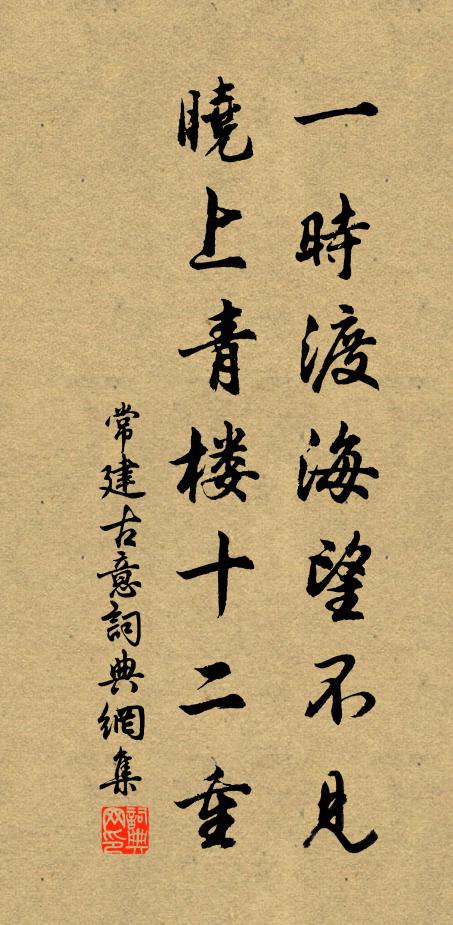 一時渡海望不見
曉上青楼十二重
常建古意詞典網集
詞典網印